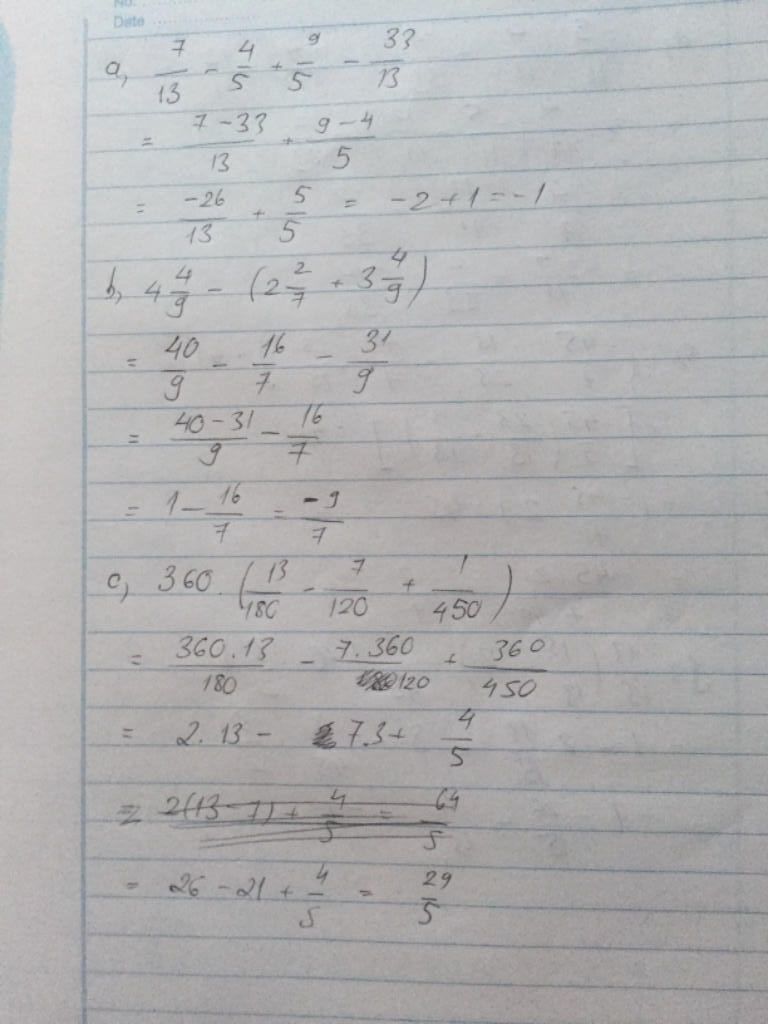 No.
Date
a, 7/13 - 4/5 + 9/5 - 33/13
= (7-33)/13 + (9-4)/5
= -26/13 + 5/5 = -2+1 = -1
b, 4 4/9 - (2 2/7 + 3 4/9)
= 40/9 - 16/7 - 31/9
= (40-31)/9 - 16/7
= 1 - 16/7 = -9/7
c, 360.(13/180 - 7/120 + 1/450)
= 360.13/180 - 7.360/120 + 360/450
= 2.13 - 7.3 + 4/5
= 2(13-7) + 4/5 = 64/5
= 26 - 21 + 4/5 = 29/5